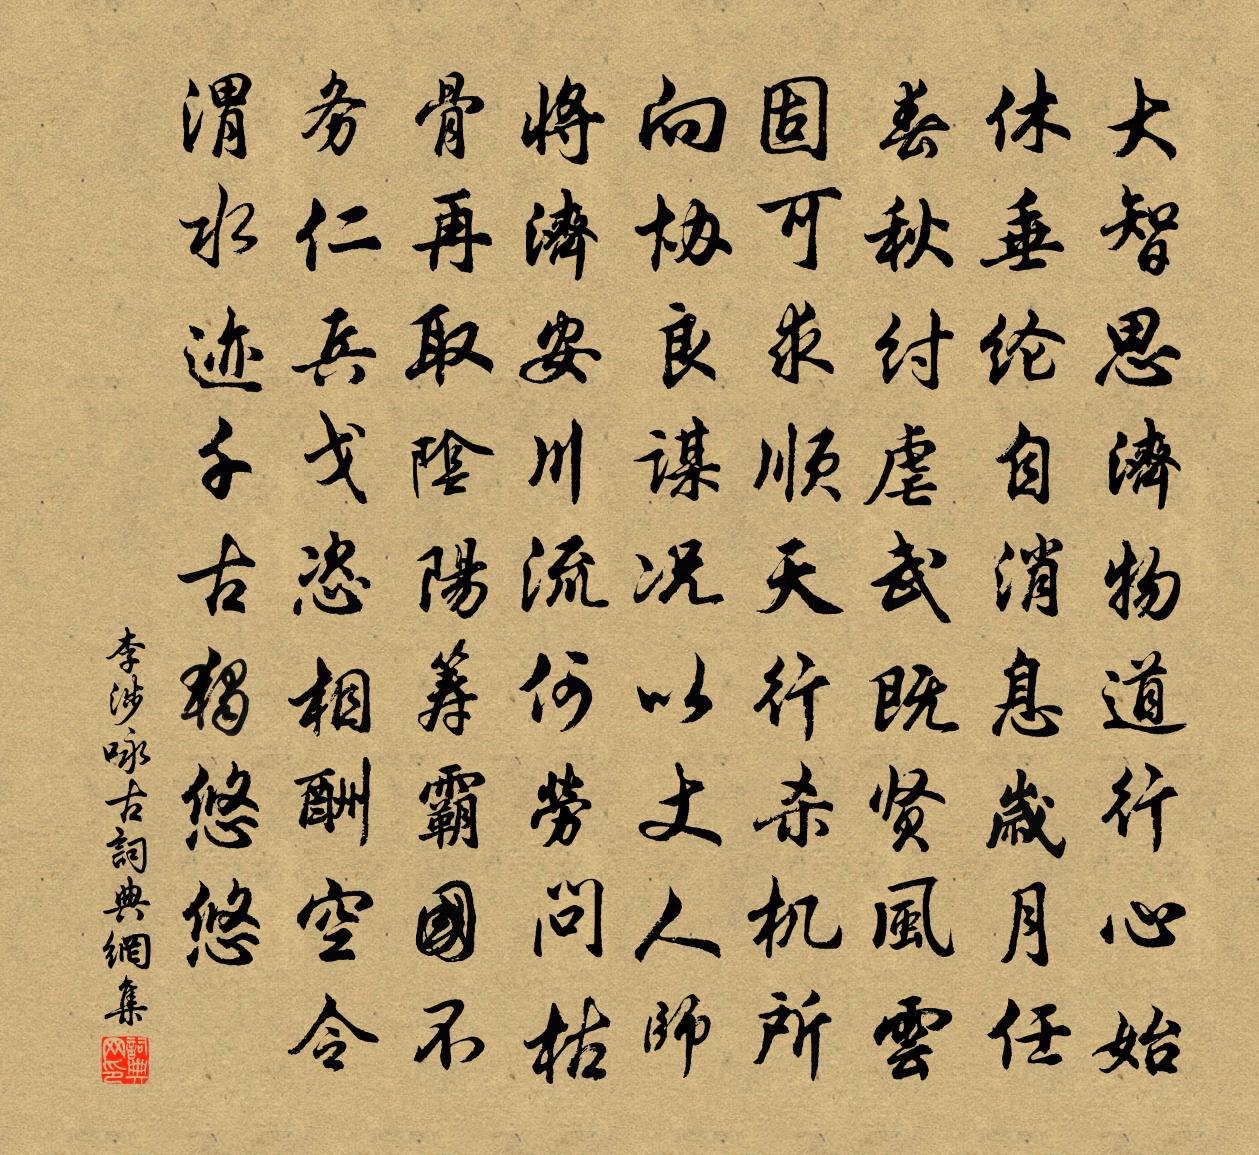 大智思濟物道行心始
休垂纶自消息歲月任
春秋纣虐武既贤風雲
固可求顺天行杀机所
向协良謀况以丈人師
将濟安川流何勞問枯
骨再取陰陽筹霸國不
务仁兵戈恣相酬空令
渭水迹千古獨悠悠
李涉咏古詞典網集
詞典网印